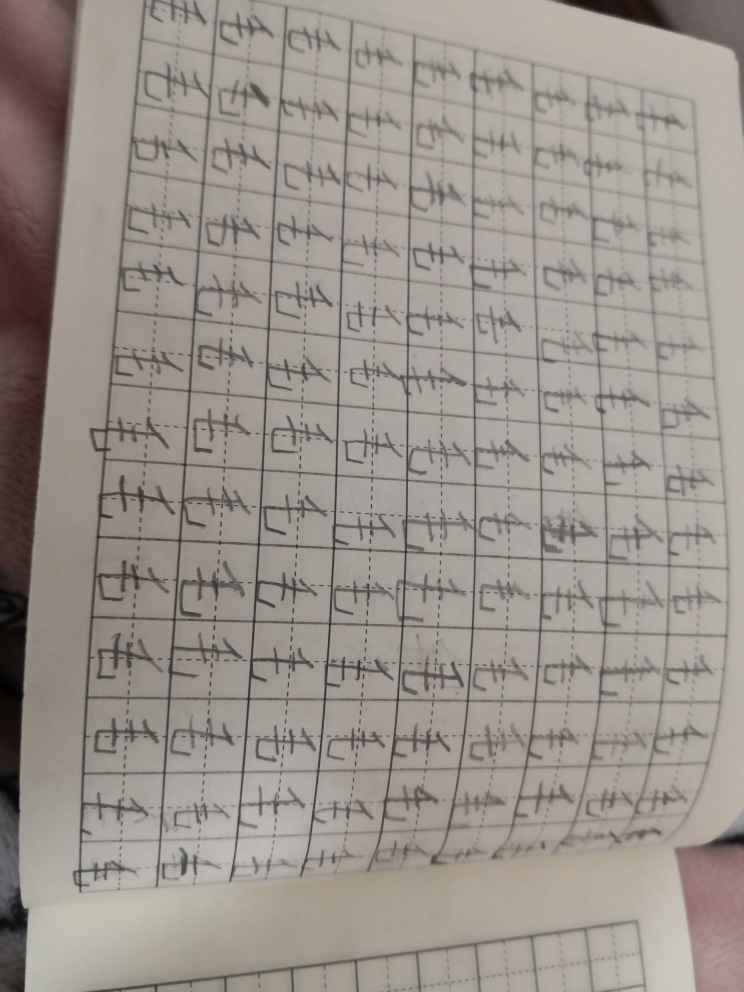 毛毛毛毛毛毛毛毛毛毛毛毛毛
毛毛毛毛毛毛毛毛毛毛毛毛毛
毛毛毛毛毛毛毛毛毛毛毛毛毛
毛毛毛毛毛毛毛毛毛毛毛毛毛
毛毛毛毛毛毛毛毛毛毛毛毛毛
毛毛毛毛毛毛毛毛毛毛毛毛毛
毛毛毛毛毛毛毛毛毛毛毛毛毛
毛毛毛毛毛毛毛毛毛毛毛毛毛
毛毛毛毛毛毛毛毛毛毛毛毛毛